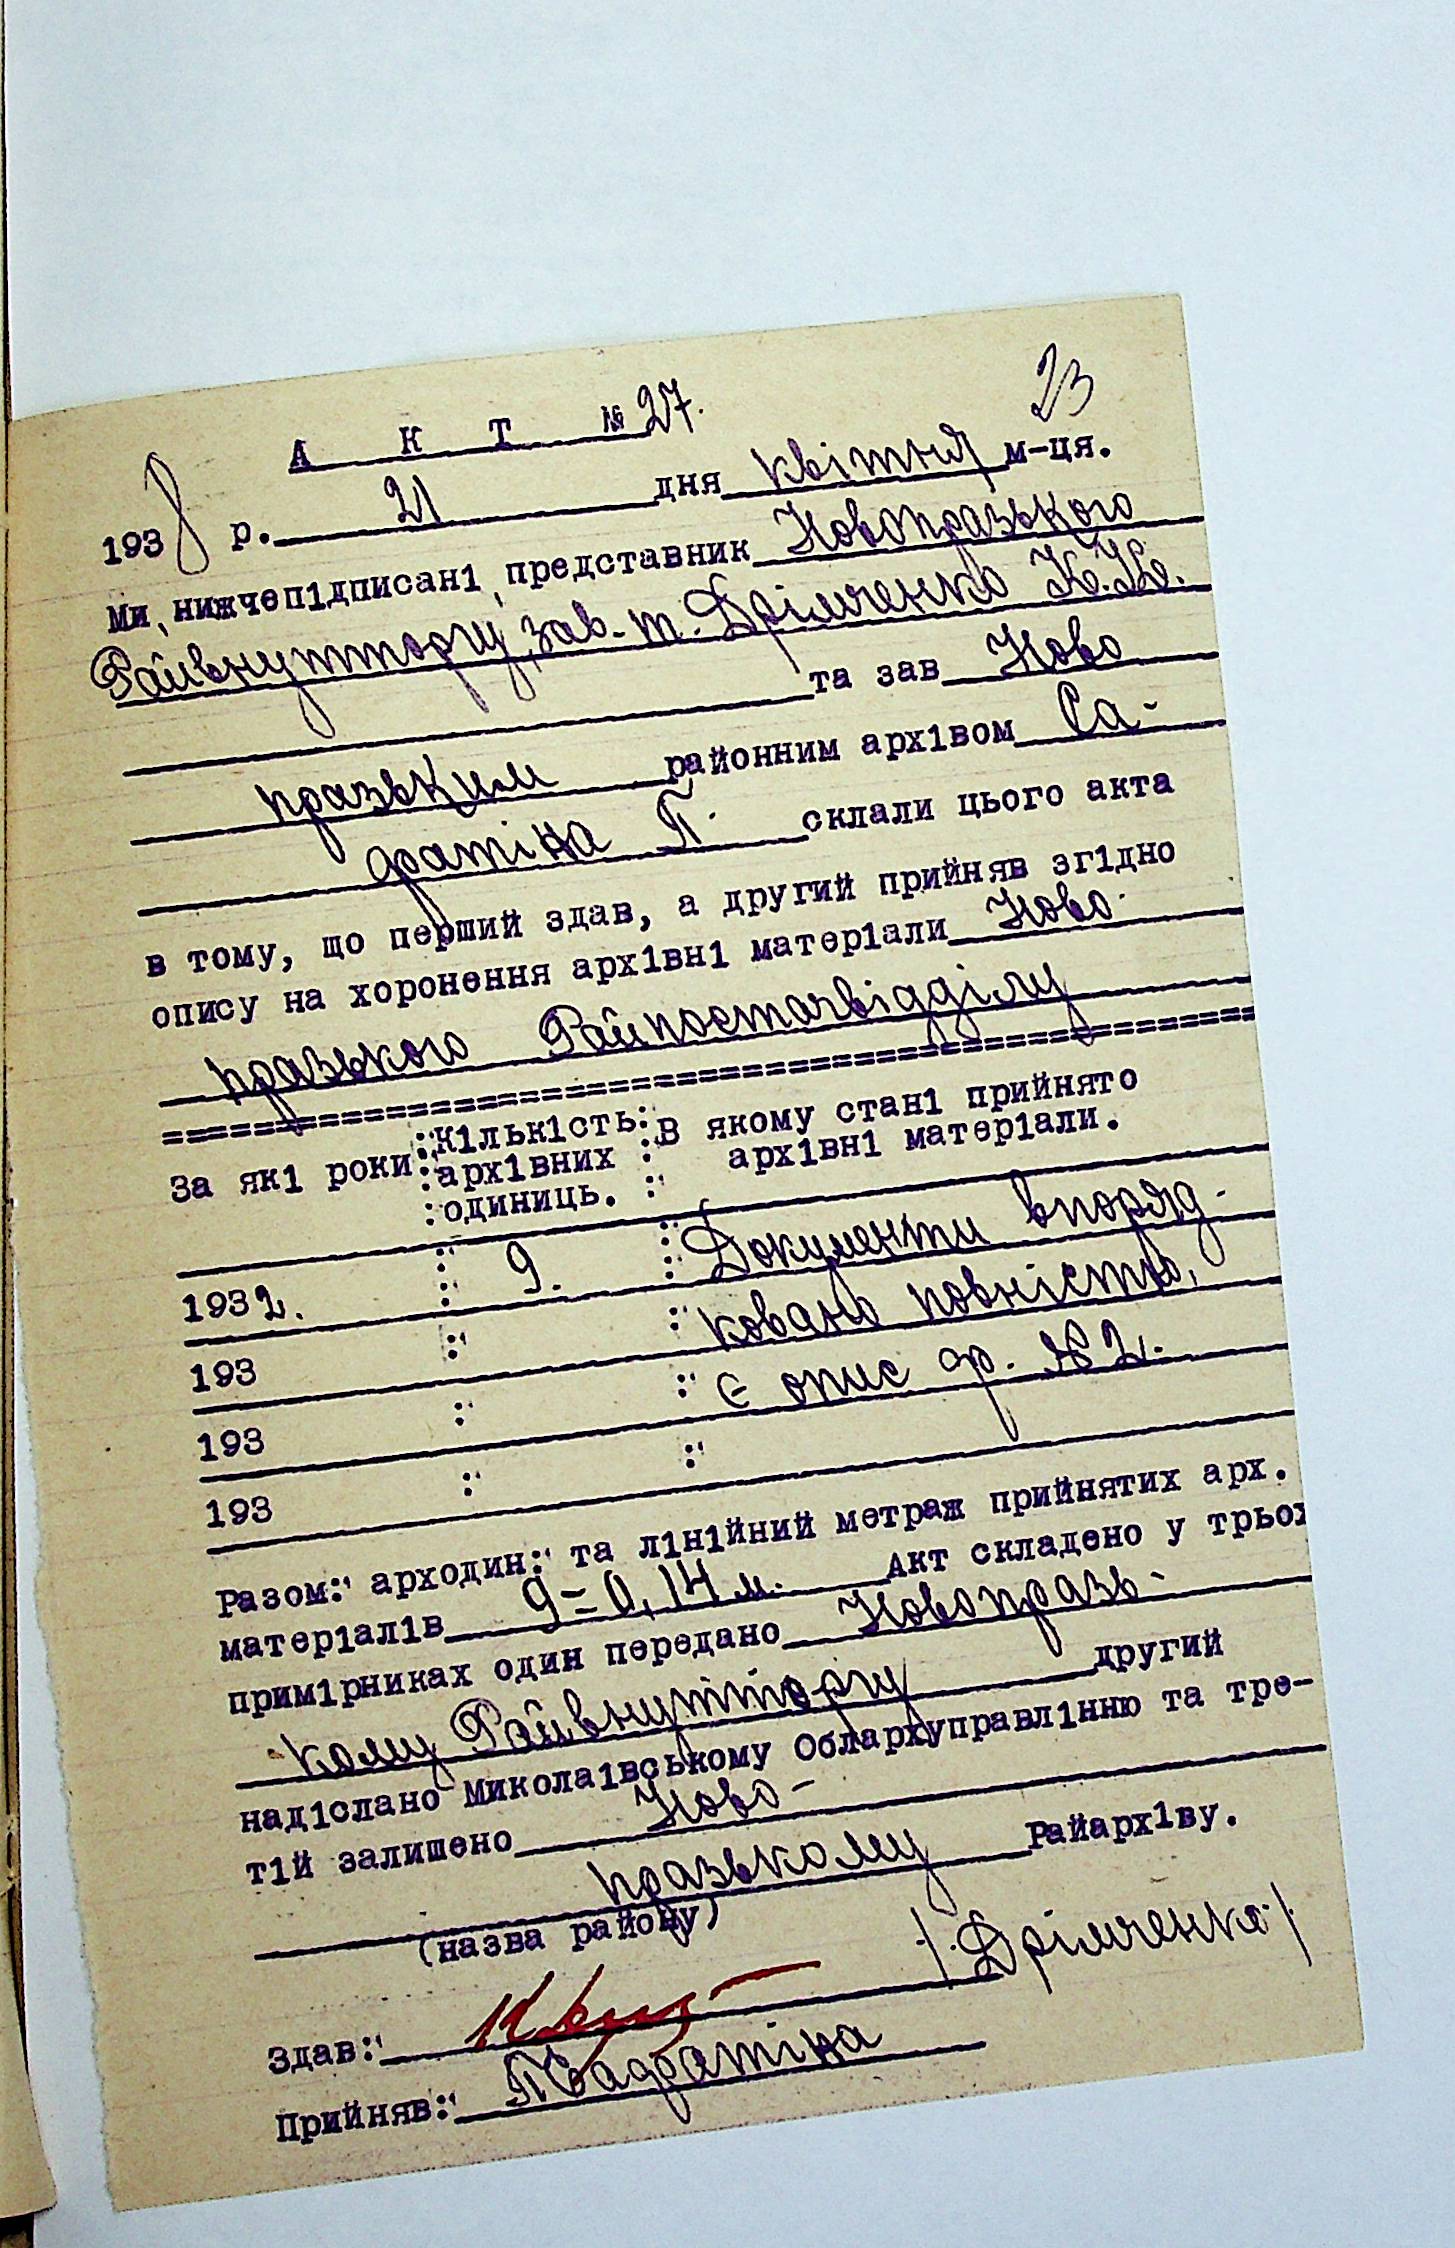 23
А К Т №27.
1938 р. 21 дня квітня м-ця.
Ми, нижчепідписані, представник Новопразького
Райвнутторгу, зав. т. Дрімченко К.К.
та зав Ново
празьким районним архівом Са-
фатіна П. склали цього акта
в тому, що перший здав, а другий прийняв згідно
опису на хоронення архівні матеріали Ново-
празького Райпостачвідділу
За які роки: кількість: В якому стані прийнято
архівних : архівні матеріали.
одиниць. :
1932. : 9. : Документи впоряд-
193 : : ковано повністю,
193 : : є опис ф. №2.
193 : :
Разом: арходин: та лінійний метраж прийнятих арх.
матеріалів 9=0,14 м. Акт складено у трьох
примірниках один передано Новопразь-
кому Райвнутторгу другий
надіслано Миколаївському Облархуправлінню та тре-
тій залишено Ново-
празькому Райархіву.
(назва району)
/Дрімченко/
Здав:
Прийняв: